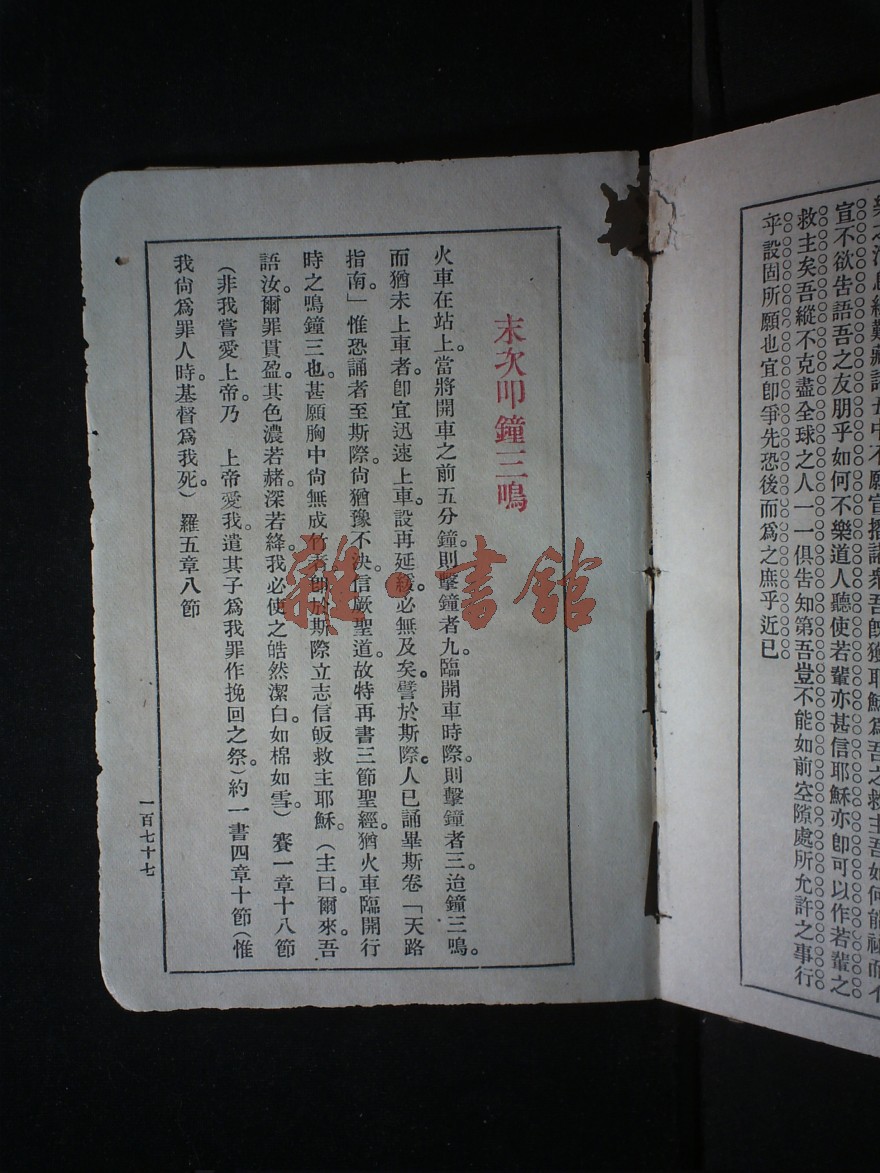 宣不欲告語吾之友朋乎如何不樂道人聽使若輩亦甚信耶穌亦卽可以作若輩之
救主矣吾縱不克盡全球之人一一俱告知第吾豈不能如前空隙處所允許之事行
乎設固所願也宜卽爭先恐後而爲之庶乎近已
末次叩鐘三鳴
火車在站上。當將開車之前五分鐘。則擊鐘者九。臨開車時際。則擊鐘者三。迨鐘三鳴。
而猶未上車者。卽宜迅速上車。設再延緩。必無及矣。譬於斯際。人已誦畢斯卷「天路
指南。」惟恐誦者至斯際。尙猶豫不決。信厥聖道。故特再書三節聖經。猶火車臨開行
時之鳴鐘三也。甚願胸中尙無成竹者。卽於斯際立志信皈救主耶穌。（主曰。爾來。吾
語汝。爾罪貫盈。其色濃若赭。深若絳。我必使之皓然潔白。如棉如雪。）賽一章十八節
（非我嘗愛上帝。乃 上帝愛我。遣其子爲我罪作挽回之祭。）約一書四章十節（惟
我尙爲罪人時。基督爲我死。）羅五章八節
一百七十七
雜·書館